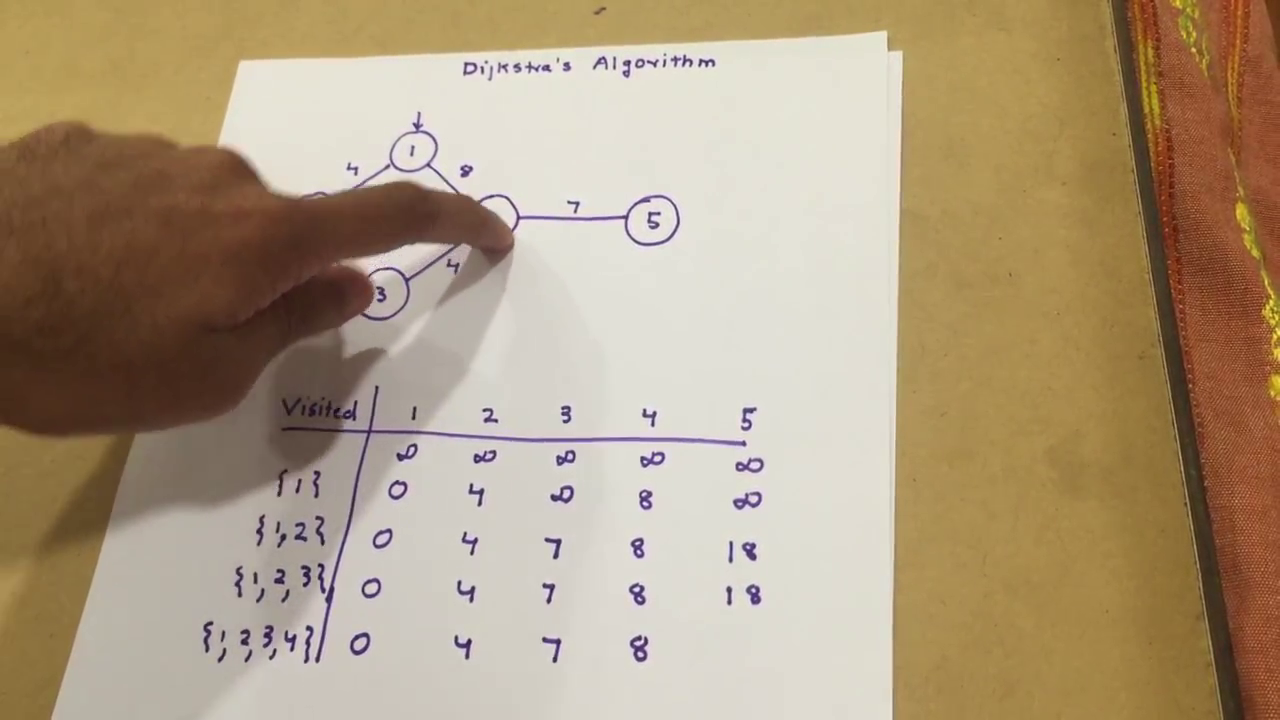 Dijkstra's Algorithm
1
4 8
7 5
4
3
Visited 1 2 3 4 5
∞ ∞ ∞ ∞ ∞
{1} 0 4 ∞ 8 ∞
{1,2} 0 4 7 8 18
{1,2,3} 0 4 7 8 18
{1,2,3,4} 0 4 7 8